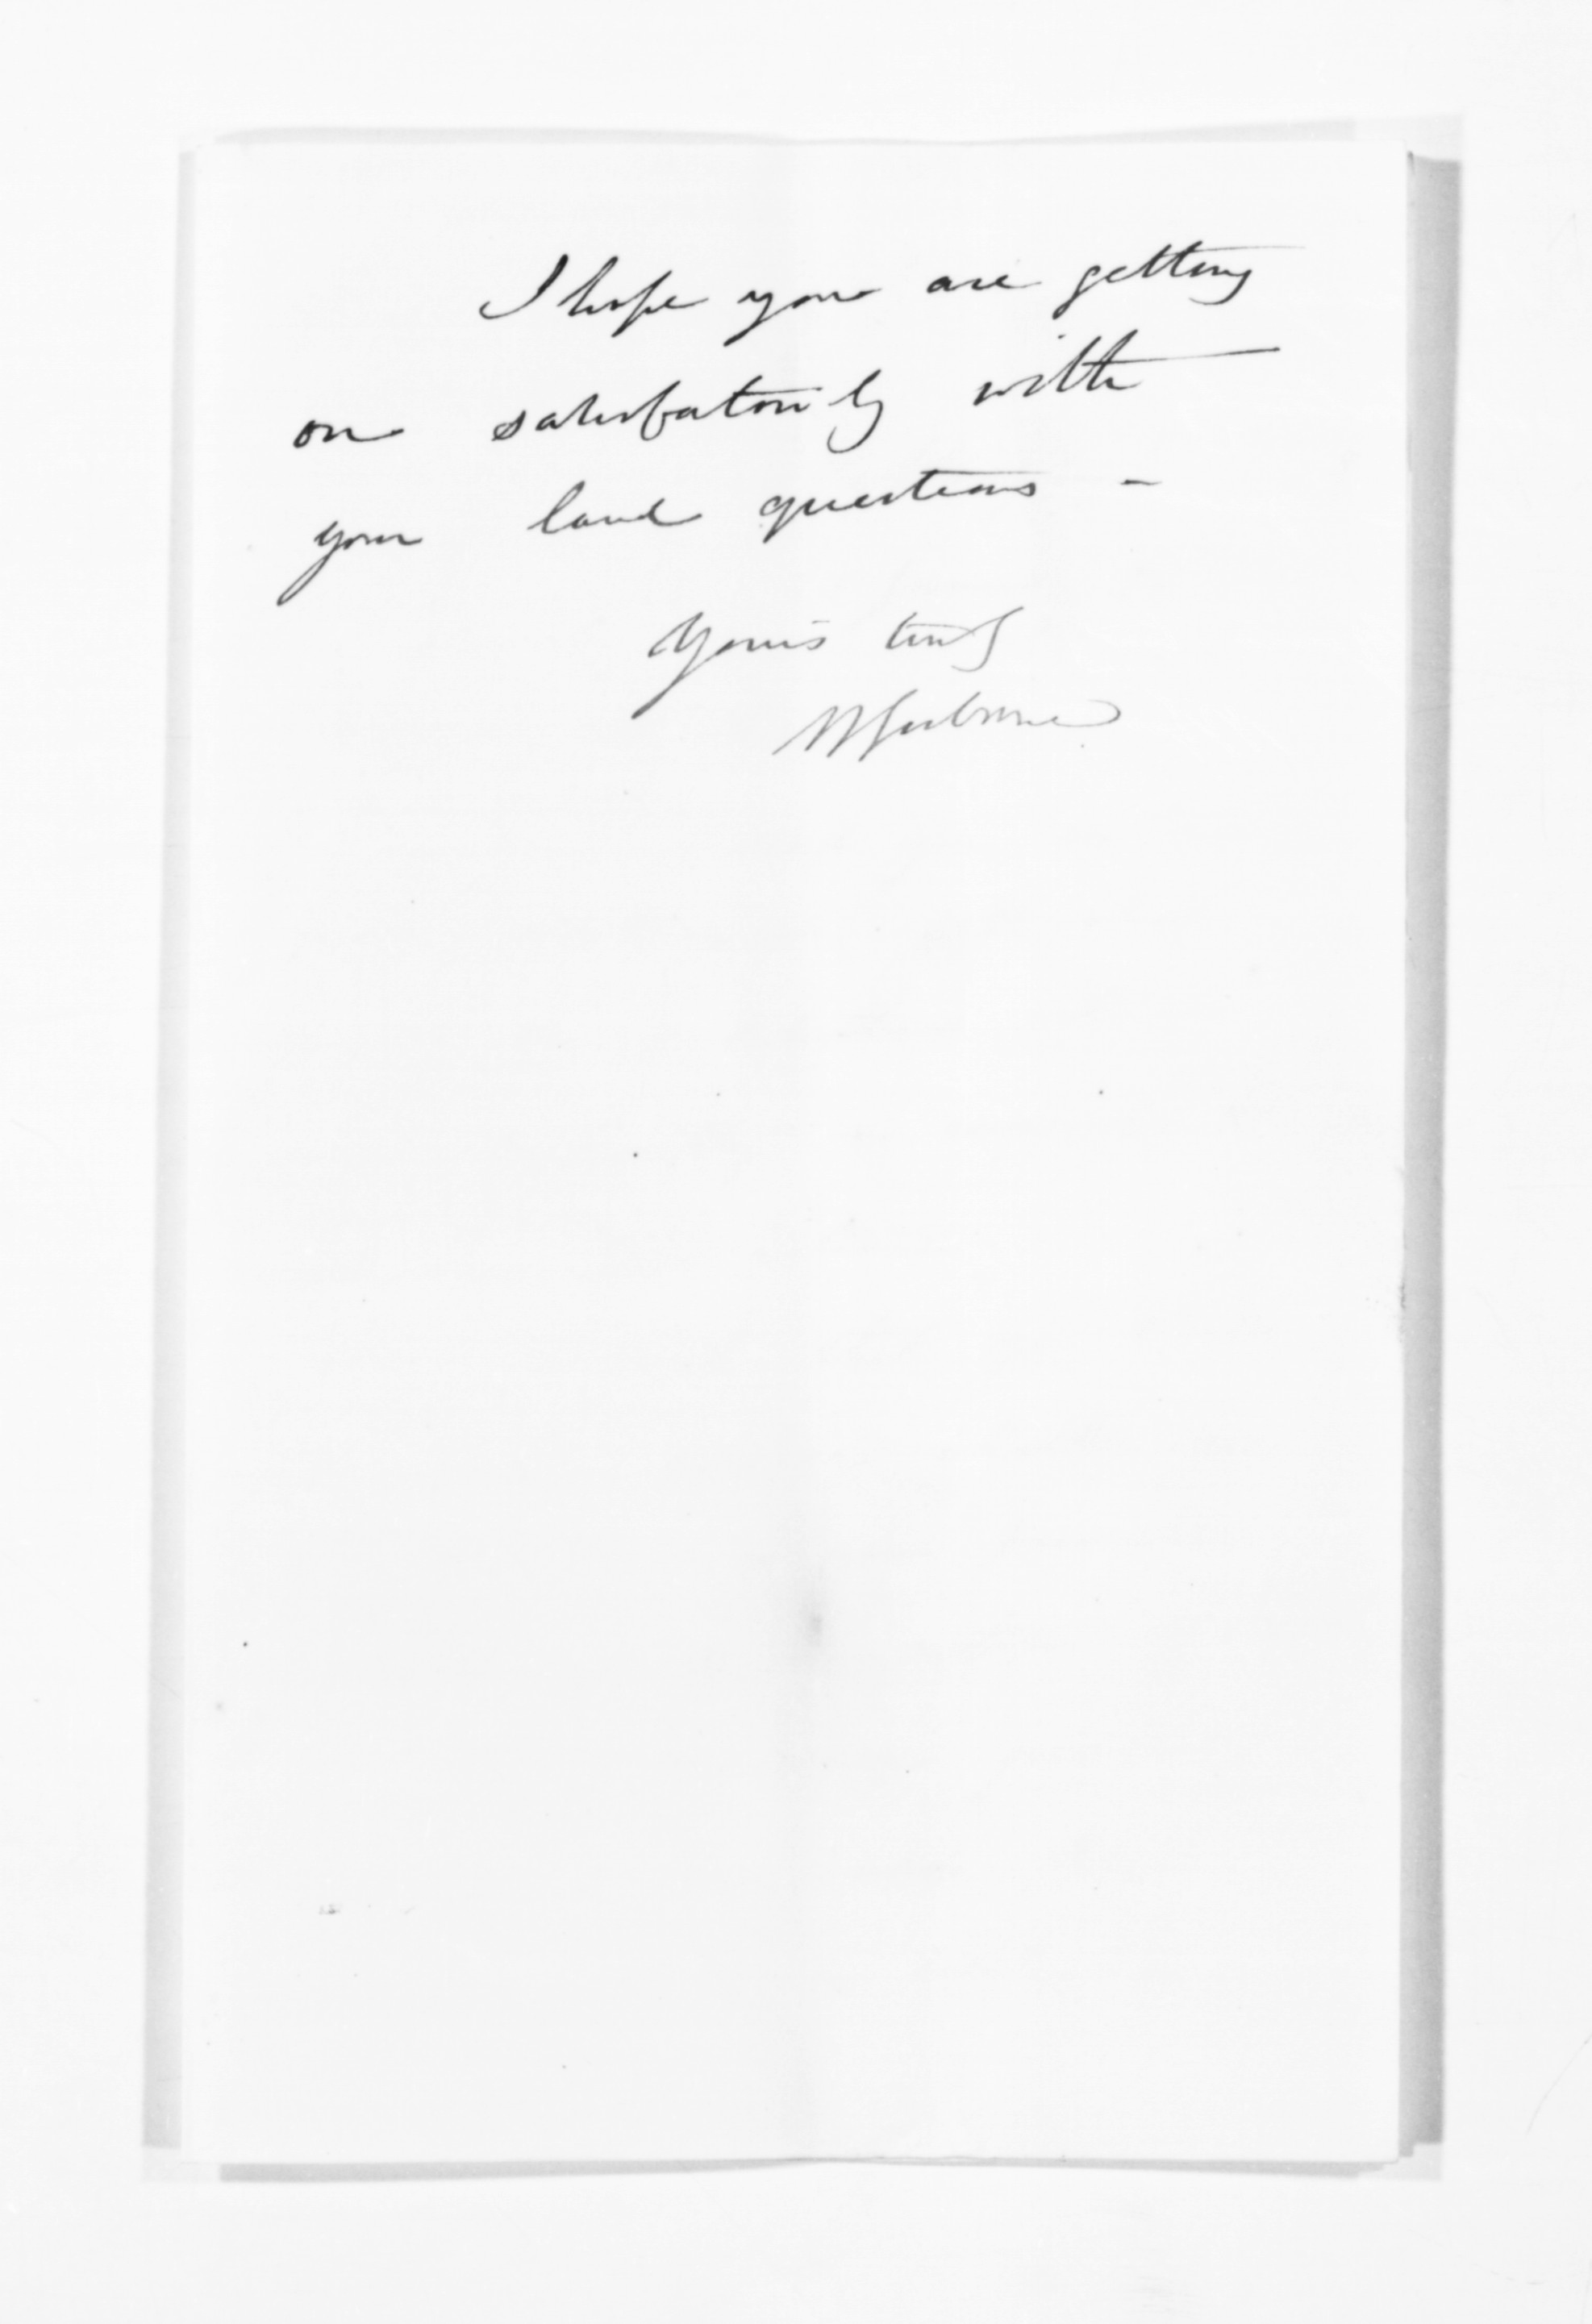 I hope you are getting
on satisfactorily with
your land questions -
Yours truly
W Gisborne